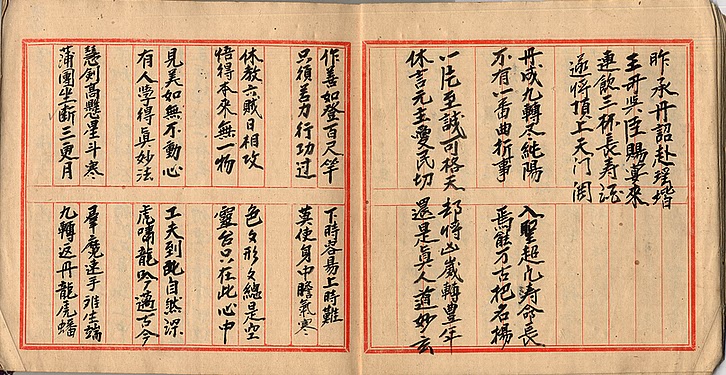 昨承丹詔赴瑤階
賜宴来
連飲三杯長壽酒
遂將頂上天門開
丹成九轉尽純陽
入聖超凡壽命長
不有一番曲折事
焉能万古把名揚
一片至誠可格天
却將凶嵗轉豊年
休言元主愛民切
還是眞人道妙玄
作善如登百尺竿
下時容易上時難
只須善力行功过
莫使身中膽氣寒
休教六賊日相攻
色々形々總是空
悟得本來無一物
靈台只在此心中
見美如無不動心
工夫到此自然深
有人学得眞妙法
虎嘯龍吟遍古今
慧劍高懸星斗寒
羣魔速手难生端
蒲團坐断三更月
九轉返丹龍虎蟠